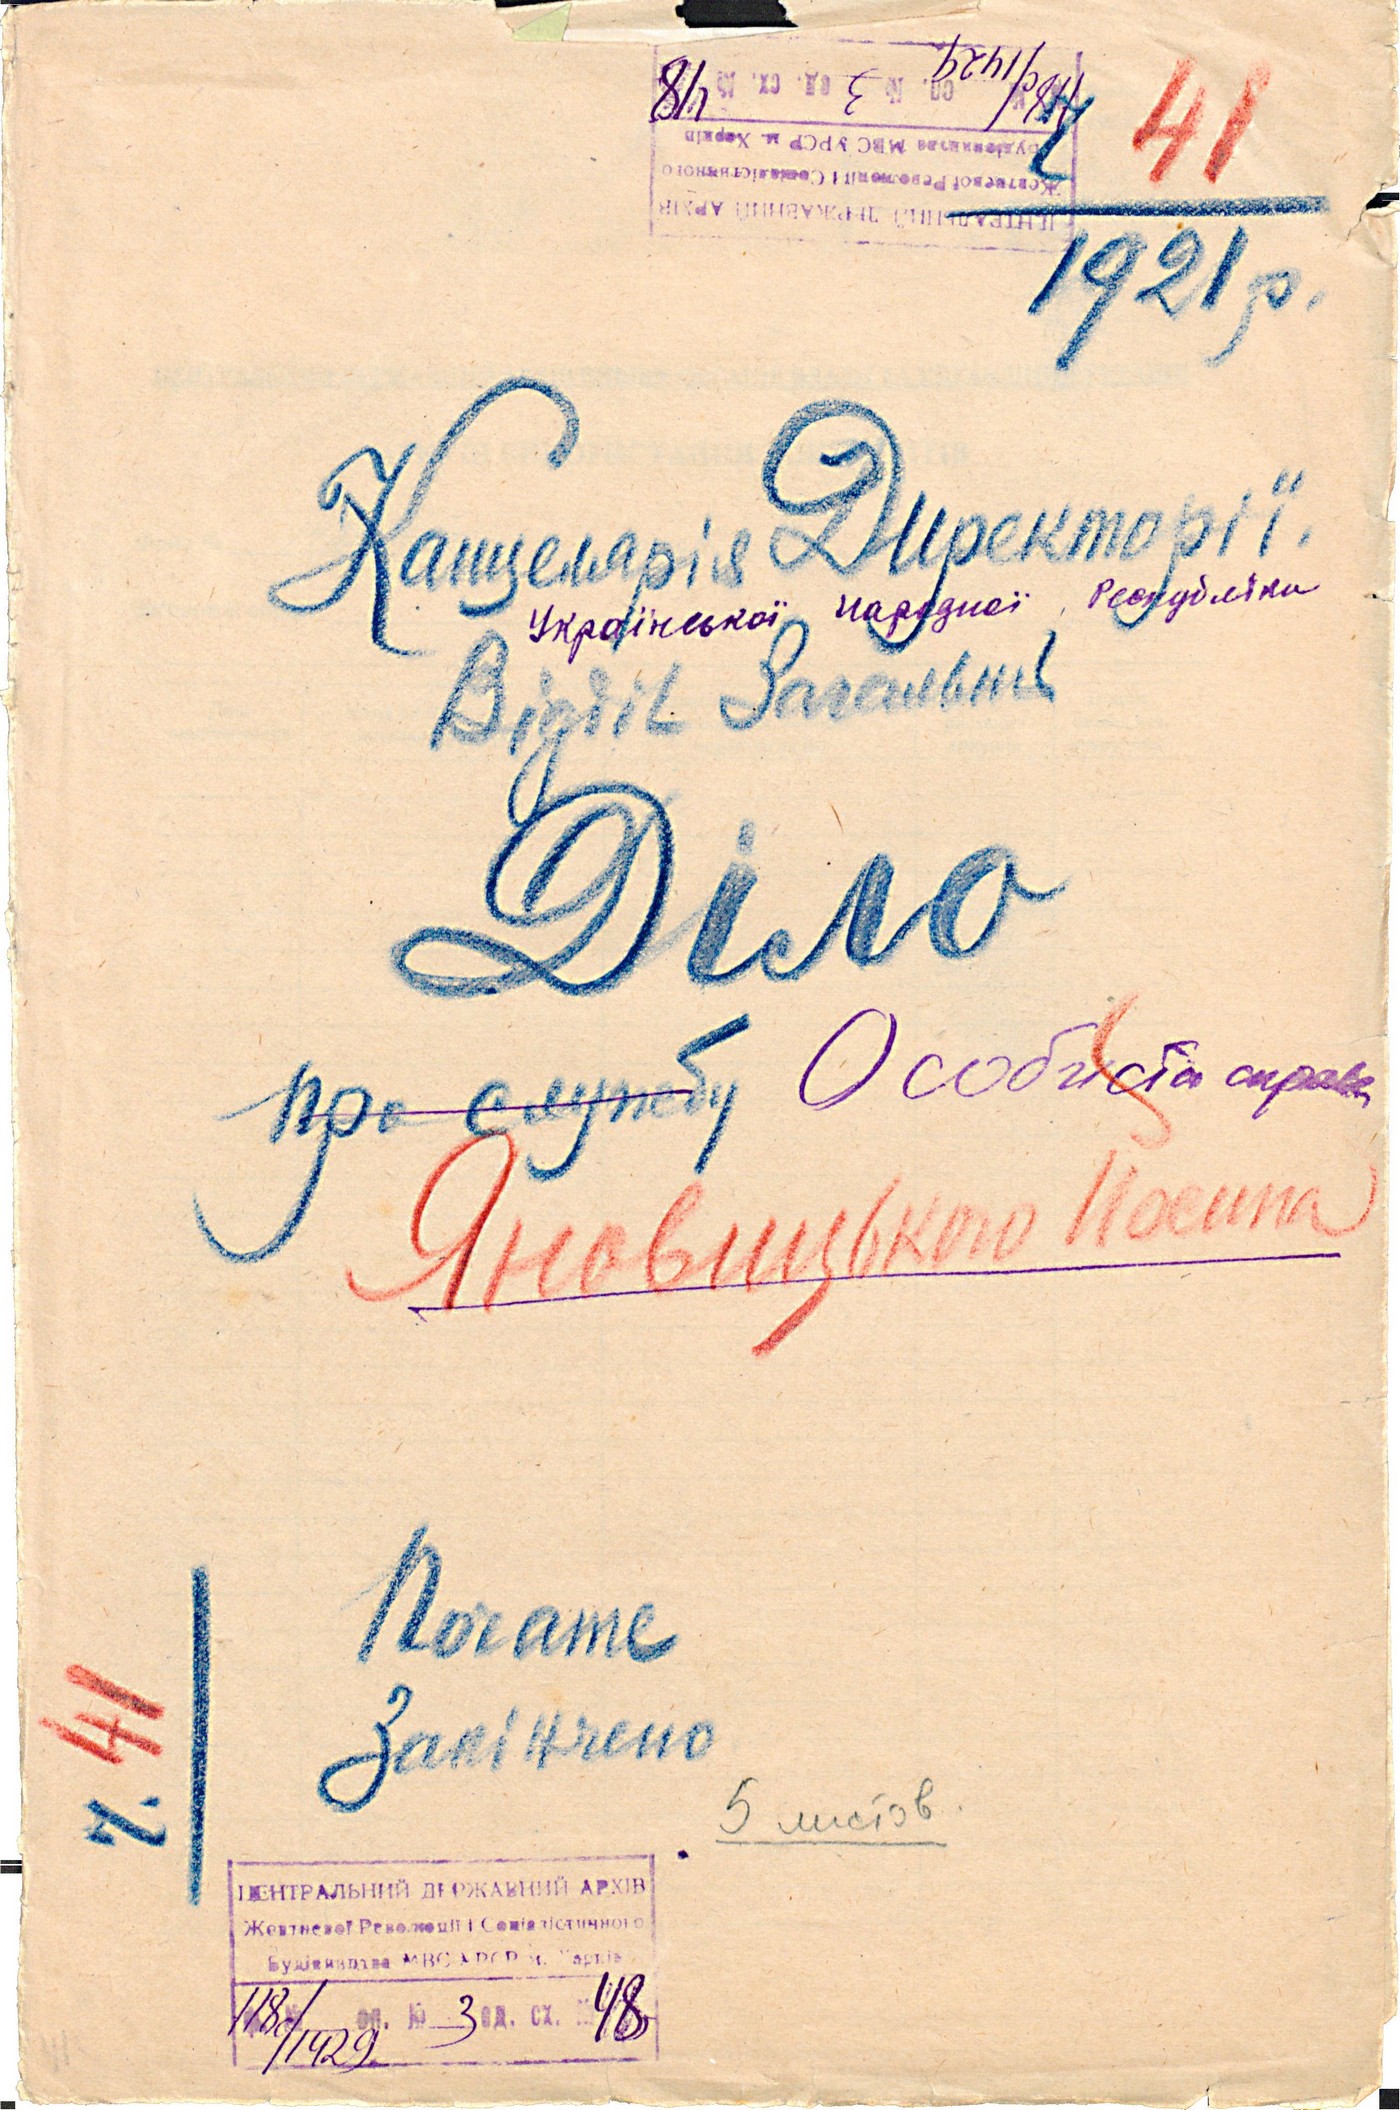 ЦЕНТРАЛЬНИЙ ДЕРЖАВНИЙ АРХІВ
Жовтневої Революції і Соціалістичного
Будівництва МВС УРСР м. Харків
118с/1429 оп. № 3 од. сх. № 48
ч. 41
1921 р.
Канцелярія Директорії.
Української Народної Республіки
Відділ Загальний
Діло
про службу Особиста справа
Яновицького Йосипа
Почате
Закінчено
5 листов.
ч. 41
ЦЕНТРАЛЬНИЙ ДЕРЖАВНИЙ АРХІВ
Жовтневої Революції і Соціалістичного
Будівництва МВС УРСР м. Харків
118с/1429 оп. № 3 од. сх. № 48